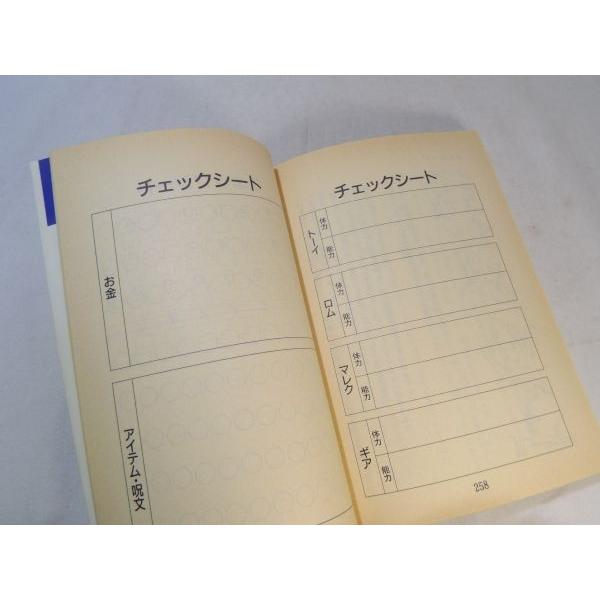 チェックシート
お金
アイテム・呪文
チェックシート
トーイ
体力
能力
ロム
体力
能力
マレク
体力
能力
ギア
体力
能力
258